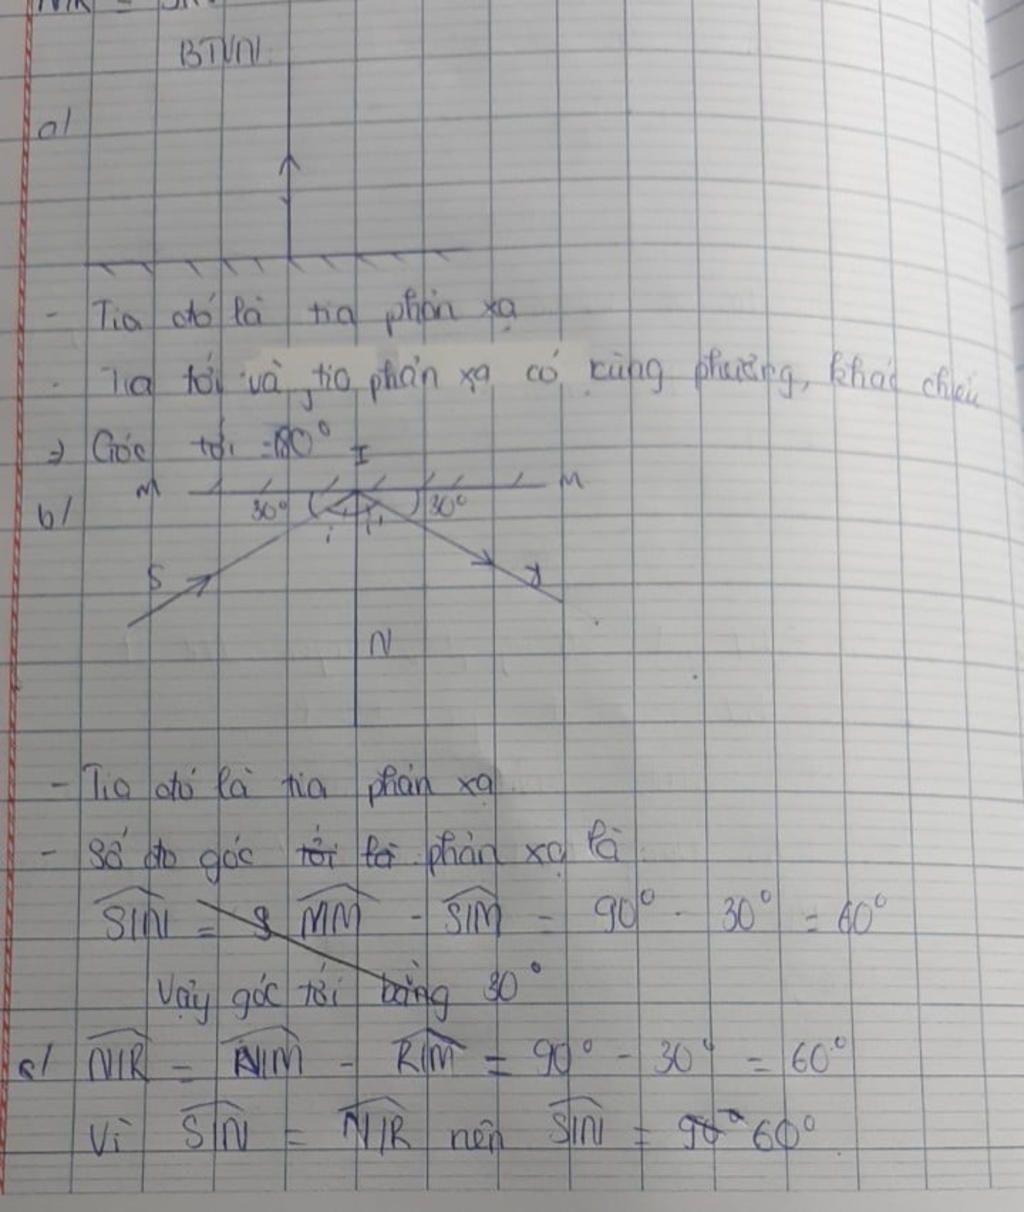 BTVN
a/
- Tia đó là tia phản xạ
- Tia tới và tia phản xạ có cùng phương, khác chiều
=> Góc tới = 0°
I
M M
b/ 30° 30°
i i'
S
N
- Tia đó là tia phản xạ
- Số đo góc tới là phản xạ là
SIN = MM - SIM = 90° - 30° = 60°
Vậy góc tới bằng 30°
c/ NIR = NIM - RIM = 90° - 30° = 60°
Vì SIN = NIR nên SIN = 60°